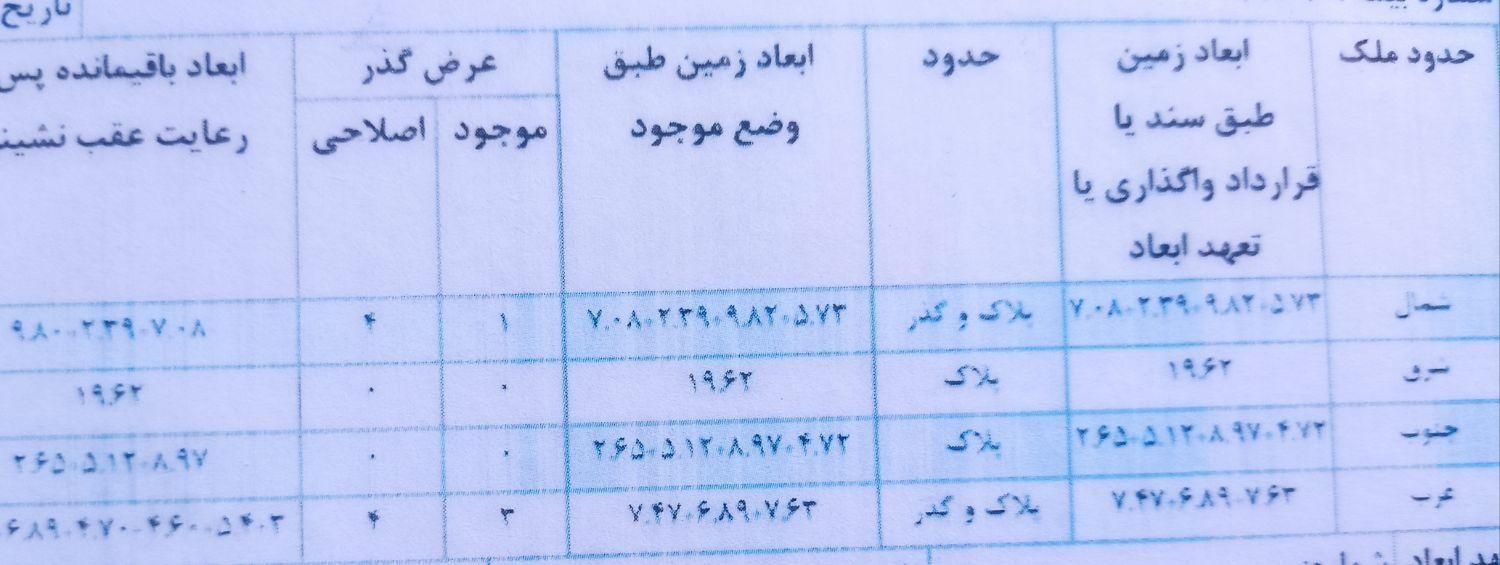 تاریخ
حدود ملک
ابعاد زمین
طبق سند یا
قرارداد واگذاری یا
تعهد ابعاد
حدود
ابعاد زمین طبق
وضع موجود
عرض گذر
موجود اصلاحی
ابعاد باقیمانده پس
رعایت عقب
شمال ۷.۰۸-۲.۳۹-۹.۸۲-۵.۷۳ پلاک و گذر ۷.۰۸-۲.۳۹-۹.۸۲-۵.۷۳ ۱ ۴ ۹.۸۰-۲.۳۹-۷.۰۸
شرق ۱۹.۶۲ پلاک ۱۹.۶۲ ۰ ۰ ۱۹.۶۲
جنوب ۲.۶۵-۵.۱۲-۸.۹۷-۴.۷۲ پلاک ۲.۶۵-۵.۱۲-۸.۹۷-۴.۷۲ ۰ ۰ ۲.۶۵-۵.۱۲-۸.۹۷
غرب ۷.۴۷-۶.۸۹-۷.۶۳ پلاک و گذر ۷.۴۷-۶.۸۹-۷.۶۳ ۳ ۴